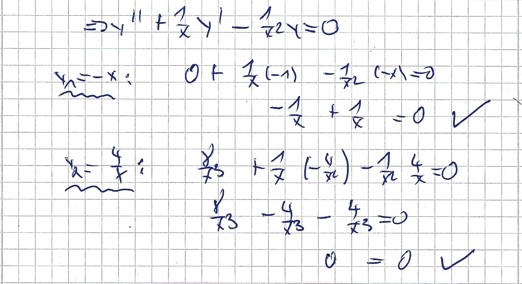 ⇒ y'' + 1/x y' - 1/x² y = 0
y₁ = -x : 0 + 1/x (-1) - 1/x² (-x) = 0
- 1/x + 1/x = 0 ✓
y₂ = 4/x : 8/x³ + 1/x (-4/x²) - 1/x² 4/x = 0
8/x³ - 4/x³ - 4/x³ = 0
0 = 0 ✓